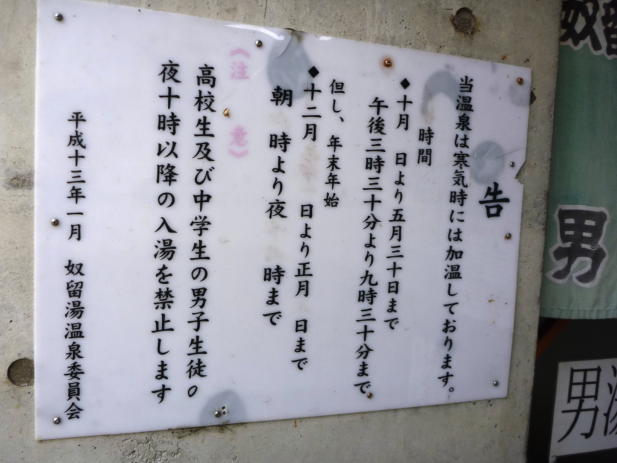 告
当温泉は寒気時には加温しております。
時間
◆十月 日より五月三十日まで
午後三時三十分より九時三十分まで
但し、年末年始
◆十二月 日より正月 日まで
朝 時より夜 時まで
《注 意》
高校生及び中学生の男子生徒の
夜十時以降の入湯を禁止します
平成十三年一月 奴留湯温泉委員会
奴留
男
男湯